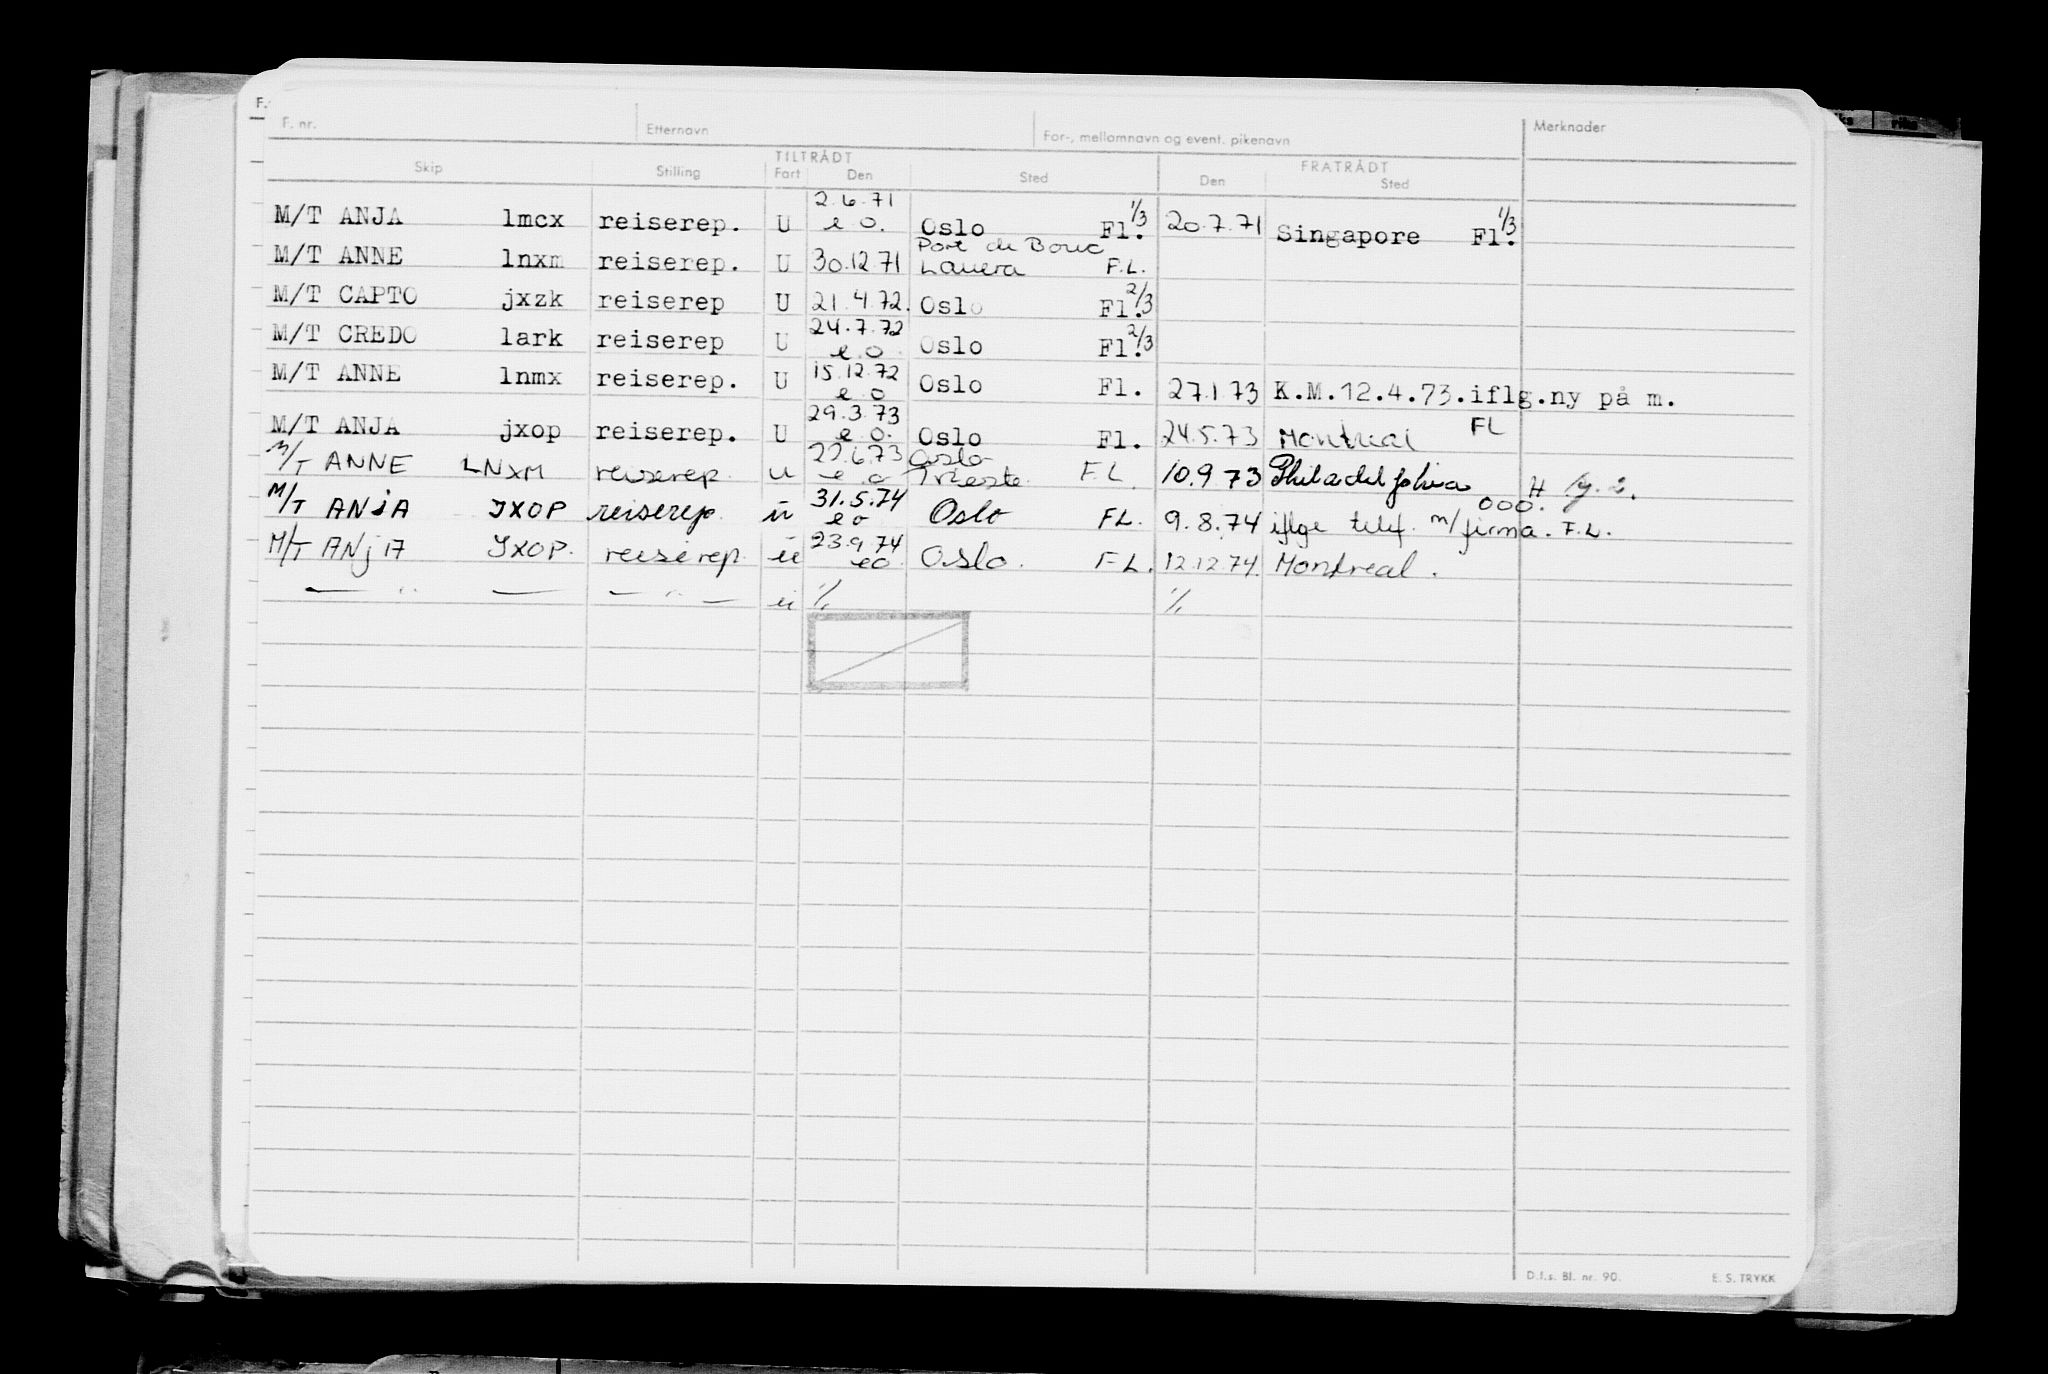 F.
F. nr. Etternavn For-, mellomnavn og event. pikenavn Merknader
TILTRÅDT FRATRÅDT
Skip Stilling Fart Den Sted Den Sted
2.6.71 1/3 1/3
M/T ANJA lmcx reiserep. U e.o. Oslo Fl. 20.7.71 Singapore Fl.
Port de Bouc
M/T ANNE lnxm reiserep. U 30.12.71 Lavera F.L.
2/3
M/T CAPTO jxzk reiserep U 21.4.72. Oslo Fl.
24.7.72 2/3
M/T CREDO lark reiserep U e.o. Oslo Fl.
15.12.72
M/T ANNE lnmx reiserep. U e.o Oslo Fl. 27.1.73 K.M.12.4.73.iflg.ny på m.
29.3.73
M/T ANJA jxop reiserep. U e.o. Oslo Fl. 24.5.73 Montreal FL
22.6.73 Oslo
M/T ANNE LNXM reiserep. u e.o Trieste F.L. 10.9.73 Philadelphia H
31.5.74 000.
M/T ANJA JXOP reiserep. u eo Oslo FL. 9.8.74 iflge telef. m/firma. F.L.
23.9.74
M/T ANJA JXOP. reiserep. u eo. Oslo. F.L. 12.12.74. Montreal.
— " — — " — u 1/1 1/1
D.f.s. Bl. nr. 90. E. S. TRYKK